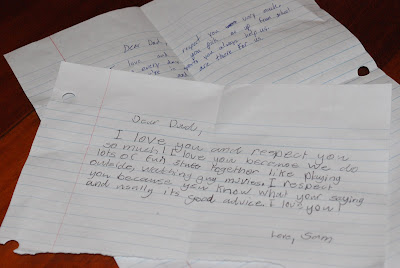 Dear Dad,
love and respect you very much,
every you pick us up from school
in you always help us
are there for us.
Dear Dad,
I love you and respect you
so much! I love you because we do
lots of fun stuff together like playing
outside, watching guy movies. I respect
you because you know what your saying
and really its good advice. I love you!
Love, Sam